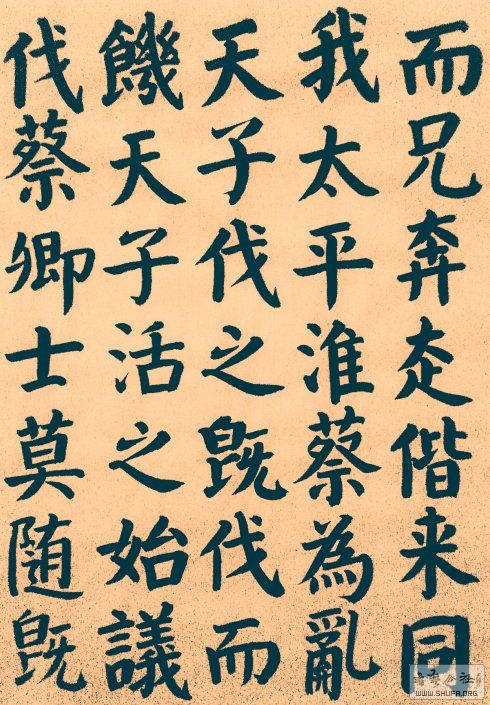 而兄奔走偕来同
我太平淮蔡為亂
天子伐之既伐而
饑天子活之始議
伐蔡卿士莫随既
WWW.SHUFA.ORG